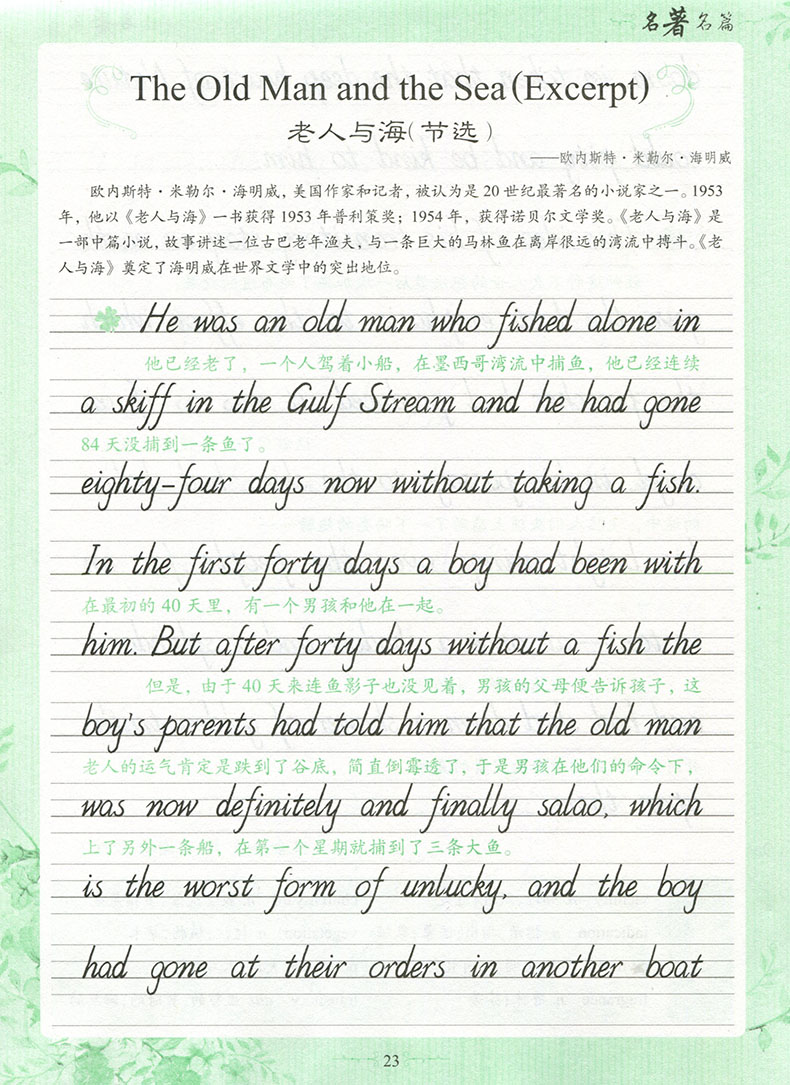 名著名篇
The Old Man and the Sea(Excerpt)
老人与海(节选)
——欧内斯特·米勒尔·海明威
欧内斯特·米勒尔·海明威，美国作家和记者，被认为是 20 世纪最著名的小说家之一。1953
年，他以《老人与海》一书获得 1953 年普利策奖；1954 年，获得诺贝尔文学奖。《老人与海》是
一部中篇小说，故事讲述一位古巴老年渔夫，与一条巨大的马林鱼在离岸很远的湾流中搏斗。《老
人与海》奠定了海明威在世界文学中的突出地位。
He was an old man who fished alone in
他已经老了，一个人驾着小船，在墨西哥湾流中捕鱼，他已经连续
a skiff in the Gulf Stream and he had gone
84 天没捕到一条鱼了。
eighty-four days now without taking a fish.
In the first forty days a boy had been with
在最初的 40 天里，有一个男孩和他在一起。
him. But after forty days without a fish the
但是，由于 40 天来连鱼影子也没见着，男孩的父母便告诉孩子，这
boy's parents had told him that the old man
老人的运气肯定是跌到了谷底，简直倒霉透了，于是男孩在他们的命令下，
was now definitely and finally salao, which
上了另外一条船，在第一个星期就捕到了三条大鱼。
is the worst form of unlucky, and the boy
had gone at their orders in another boat
23